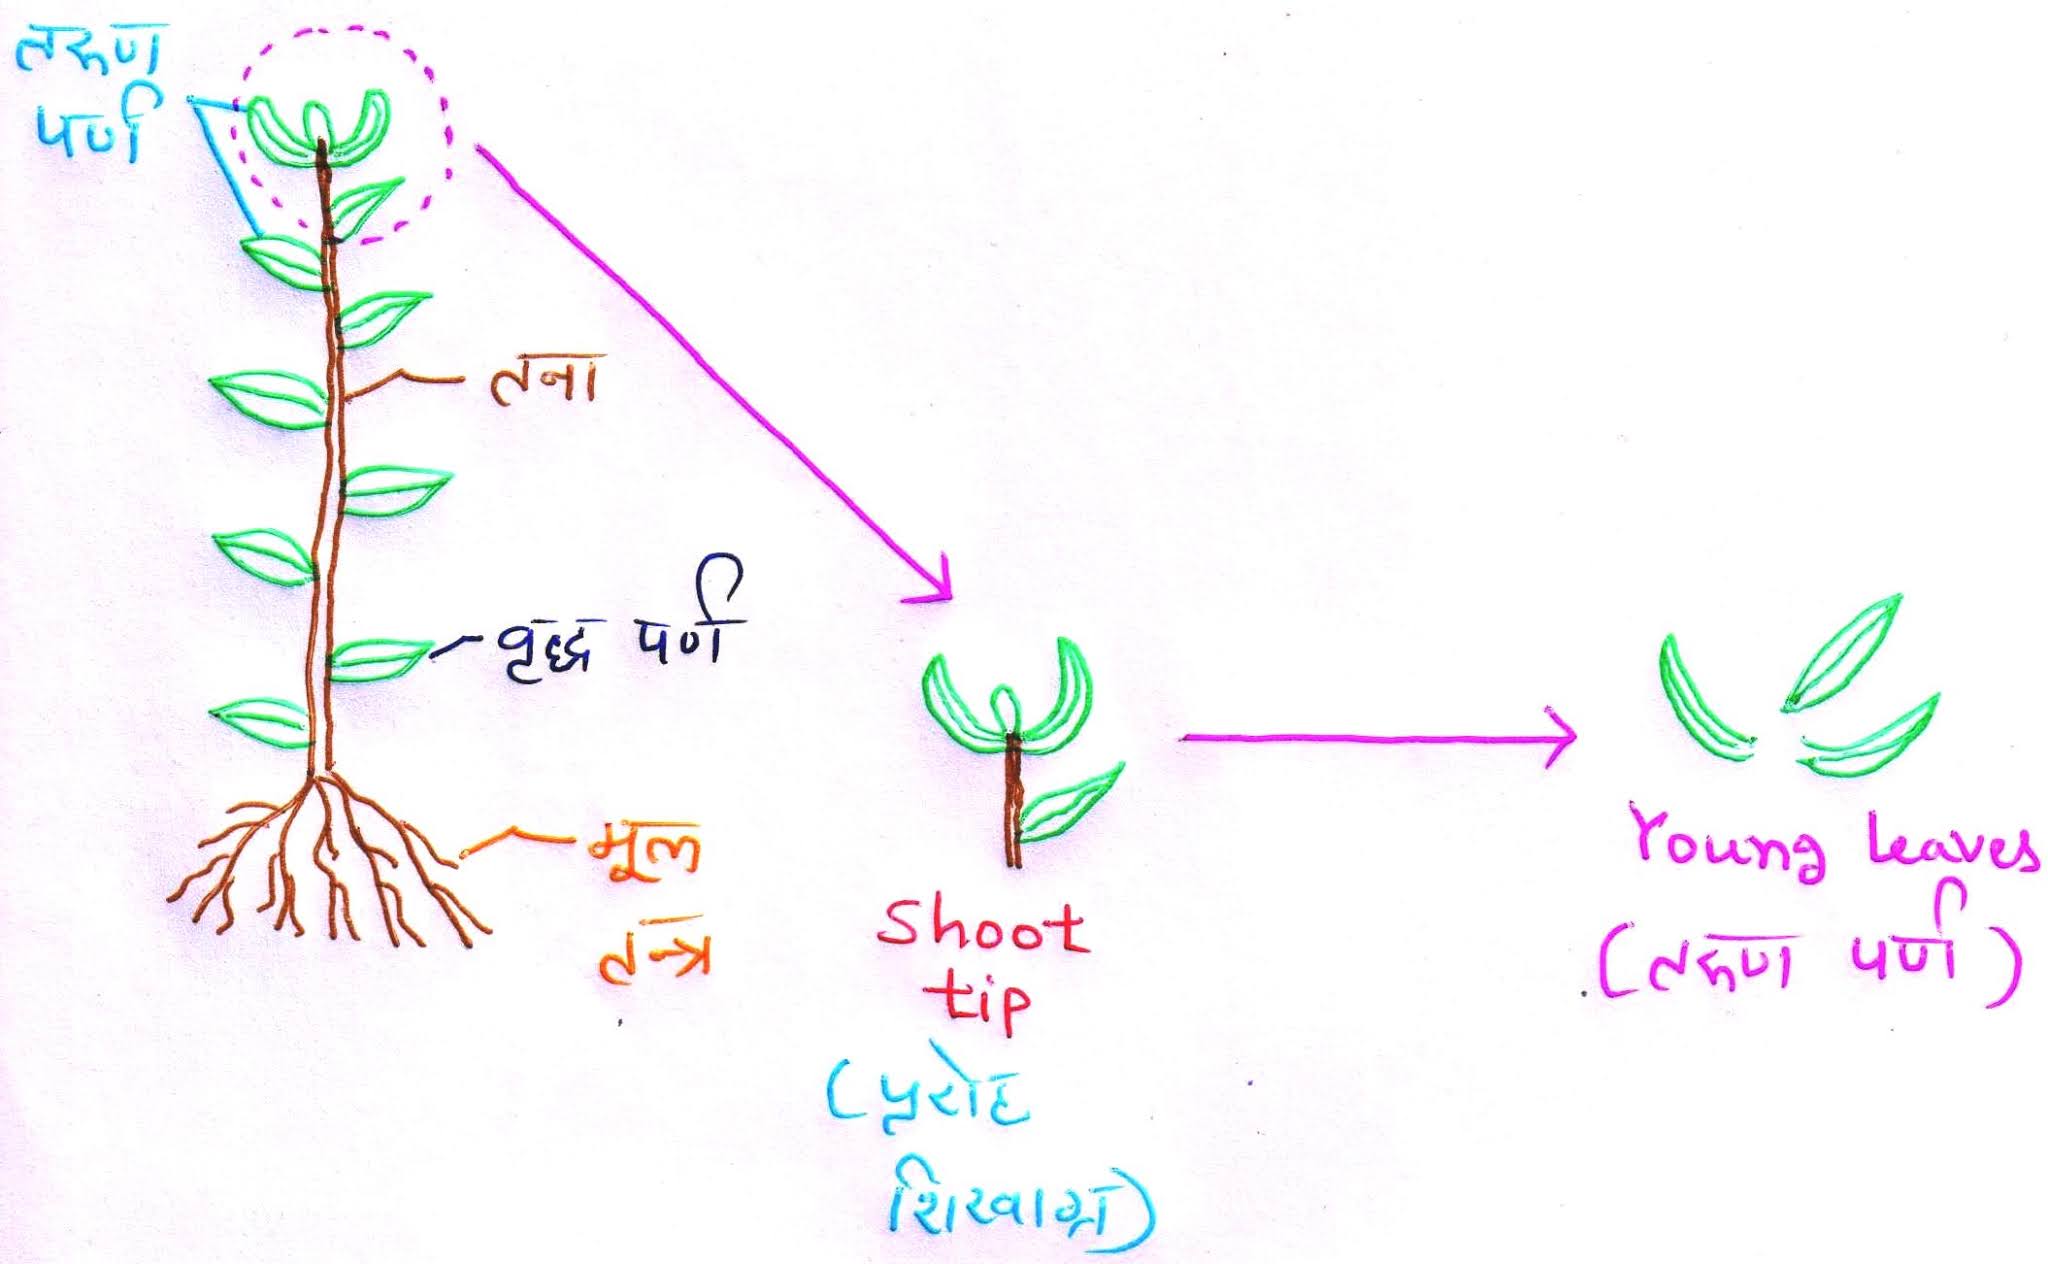 तरूण
पर्ण
तना
वृद्ध पर्ण
मूल
तन्त्र
Shoot
tip
(प्ररोह
शिखाग्र)
Young leaves
(तरूण पर्ण)